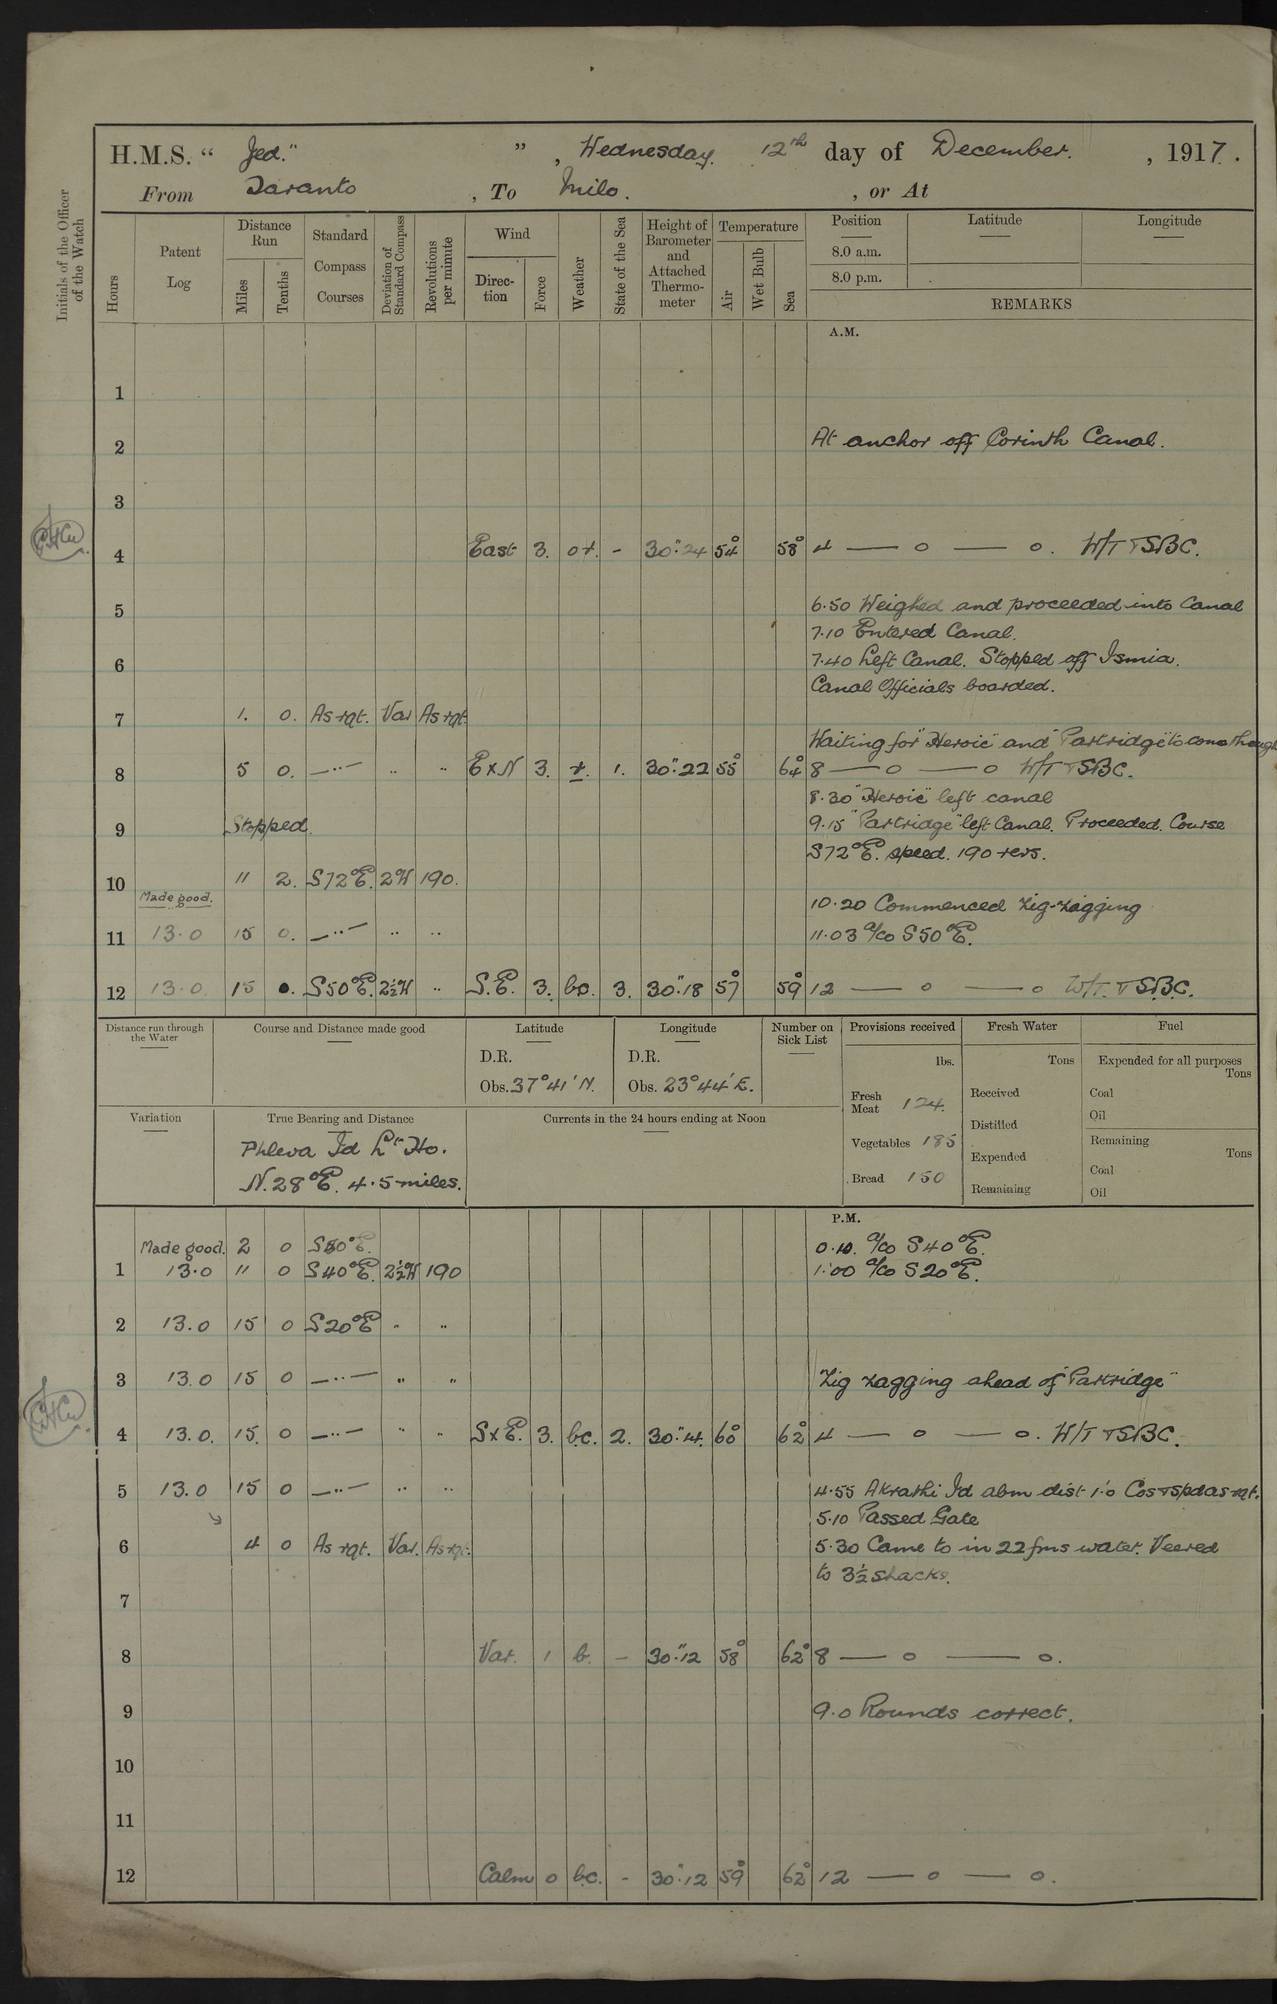 H.M.S. “ Jed." ” , Wednesday. 12th day of December. , 1917.
From Taranto , To Milo. , or At
Initials of the Officer of the Watch
Hours
Patent Log
Distance Run
Miles
Tenths
Standard Compass Courses
Deviation of Standard Compass
Revolutions per minute
Wind
Direction
Force
Weather
State of the Sea
Height of Barometer and Attached Thermometer
Temperature
Air
Wet Bulb
Sea
Position Latitude Longitude
8.0 a.m.
8.0 p.m.
REMARKS
A.M.
1
2 At anchor off Corinth Canal.
3
4 East 3. or. - 30".24 54° 58° 4 — o — o. W/T TSBC.
5 6.50 Weighed and proceeded into Canal
7.10 Entered Canal.
6 7.40 Left Canal. Stopped off Ismia.
Canal Officials boarded.
7 1. 0. As rqt. Var As rqt.
Waiting for "Heroic" and "Partridge" to come through
8 5 0. —··— ·· ·· ExN 3. r. 1. 30".22 55° 64° 8 — o — o W/T TSBC.
8.30 "Heroic" left canal
9 Stopped. 9.15 "Partridge" left Canal. Proceeded. Course
S72°E. speed. 190 revs.
10 11 2. S72°E. 2°W 190.
Made good. 10.20 Commenced zig-zagging
11 13.0 15 0. —··— ·· ·· 11.03 a/co S50°E.
12 13.0. 15 0. S50°E. 2½°W ·· S.E. 3. bc. 3. 30".18 57° 59° 12 — o — o W/T. TSBC.
Distance run through the Water
Course and Distance made good
Latitude
D.R.
Obs. 37°41' N.
Longitude
D.R.
Obs. 23°44' E.
Number on Sick List
Provisions received
lbs.
Fresh Meat 124.
Vegetables 185
Bread 150
Fresh Water
Tons
Received
Distilled
Expended
Remaining
Fuel
Expended for all purposes
Tons
Coal
Oil
Remaining
Tons
Coal
Oil
Variation
True Bearing and Distance
Phleva Id Lt Ho.
N.28°E. 4.5 miles.
Currents in the 24 hours ending at Noon
P.M.
Made good. 2 0 S50°E. 0.10. a/co S40°E.
1 13.0 11 0 S40°E. 2½°W 190 1.00 a/co S20°E.
2 13.0 15 0 S20°E ·· ··
3 13.0 15 0 —··— ·· ·· Zig zagging ahead of "Partridge"
4 13.0. 15. 0 —··— ·· ·· SxE. 3. bc. 2. 30".14. 60° 62° 4 — o — o. W/T TSBC.
5 13.0 15 0 —··— ·· ·· 4.55 Akrathi Id abm dist 1'.0 Cos & spd as rqt.
5.10 Passed Gate
6 4 0 As rqt. Var. As rqt. 5.30 Came to in 22 fms water. Veered
to 3½ shacks.
7
8 Var. 1 b. - 30".12 58° 62° 8 — o — o.
9 9.0 Rounds correct.
10
11
12 Calm 0 bc. - 30".12 59° 62° 12 — o — o.